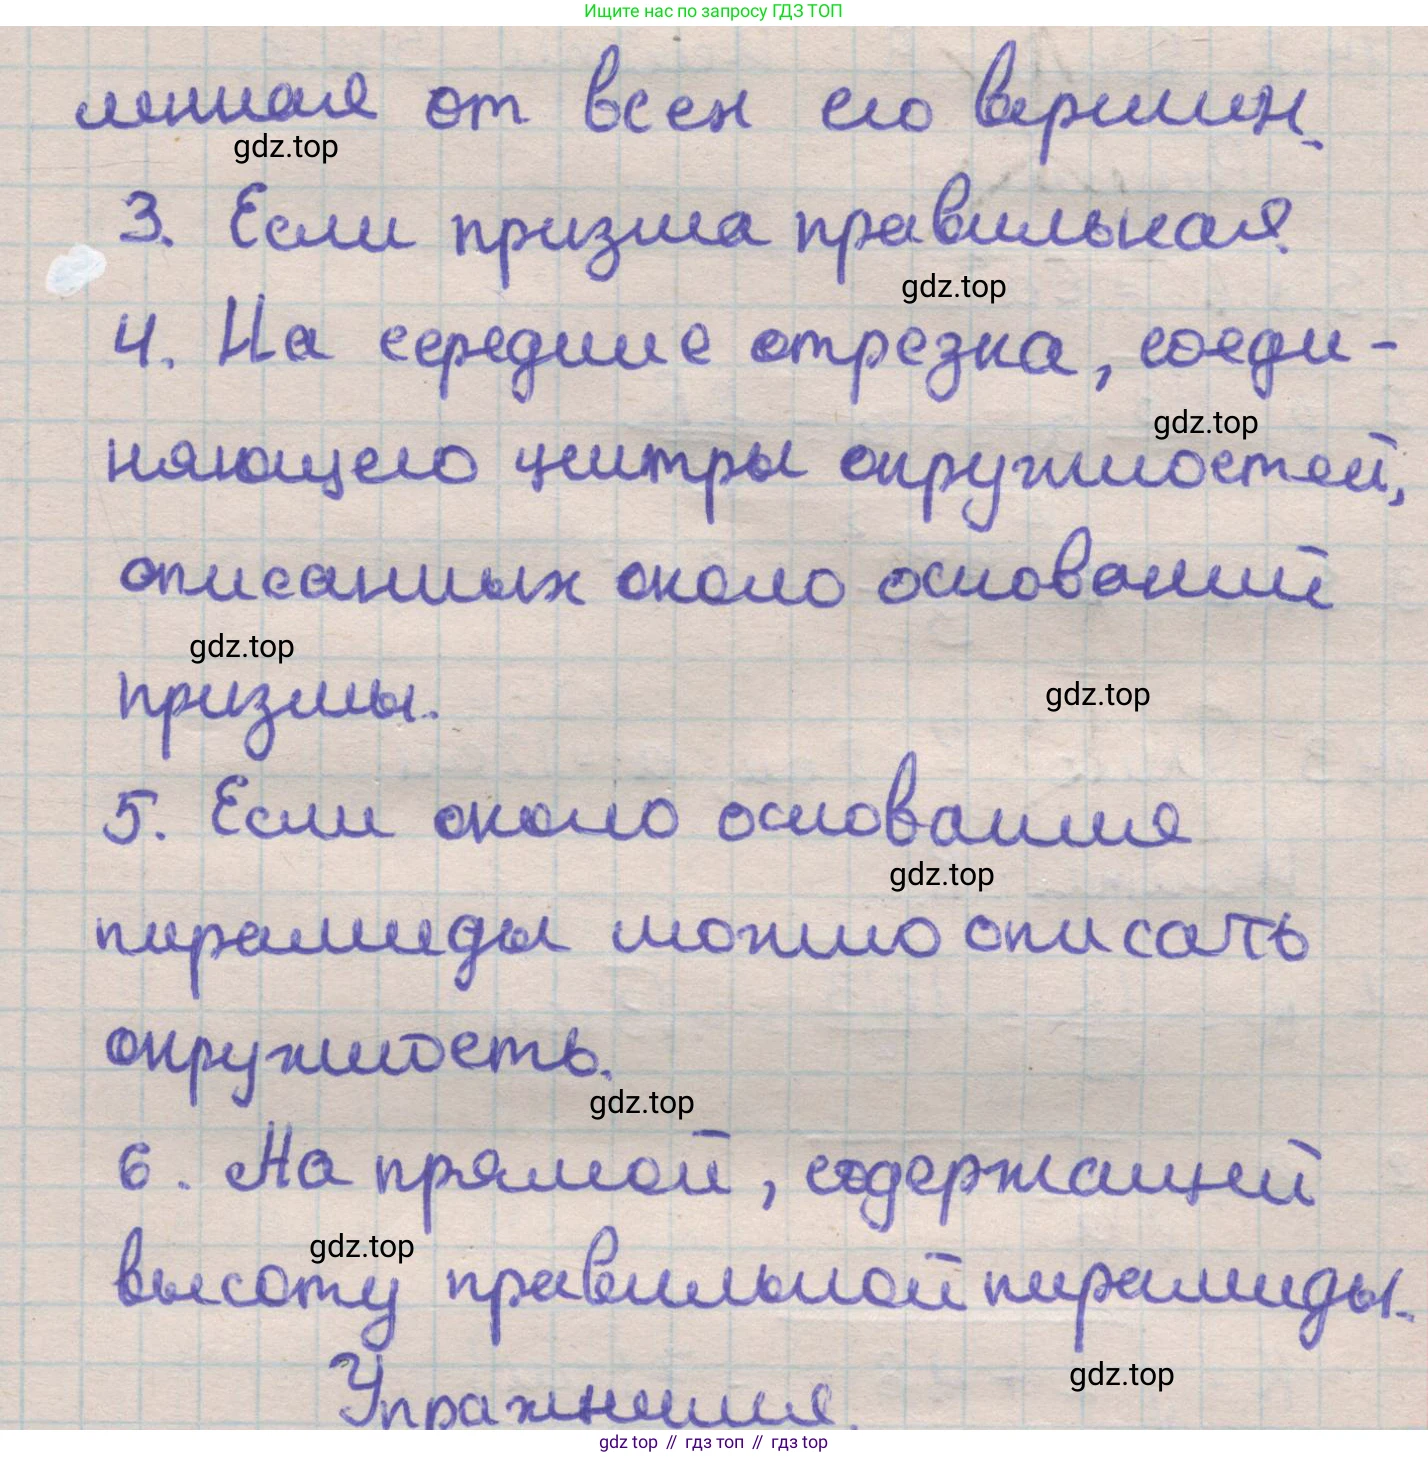 Ищите нас по запросу ГДЗ ТОП
ленная от всех его вершин.
gdz.top
3. Если призма правильная.
gdz.top
4. На середине отрезка, соеди-
gdz.top
няющего центры окружностей,
описанных около оснований
gdz.top
призмы.
gdz.top
5. Если около основания
gdz.top
пирамиды можно описать
окружность.
gdz.top
6. На прямой, содержащей
gdz.top
высоту правильной пирамиды.
gdz.top
Упражнения.
gdz top // гдз топ // гдз top